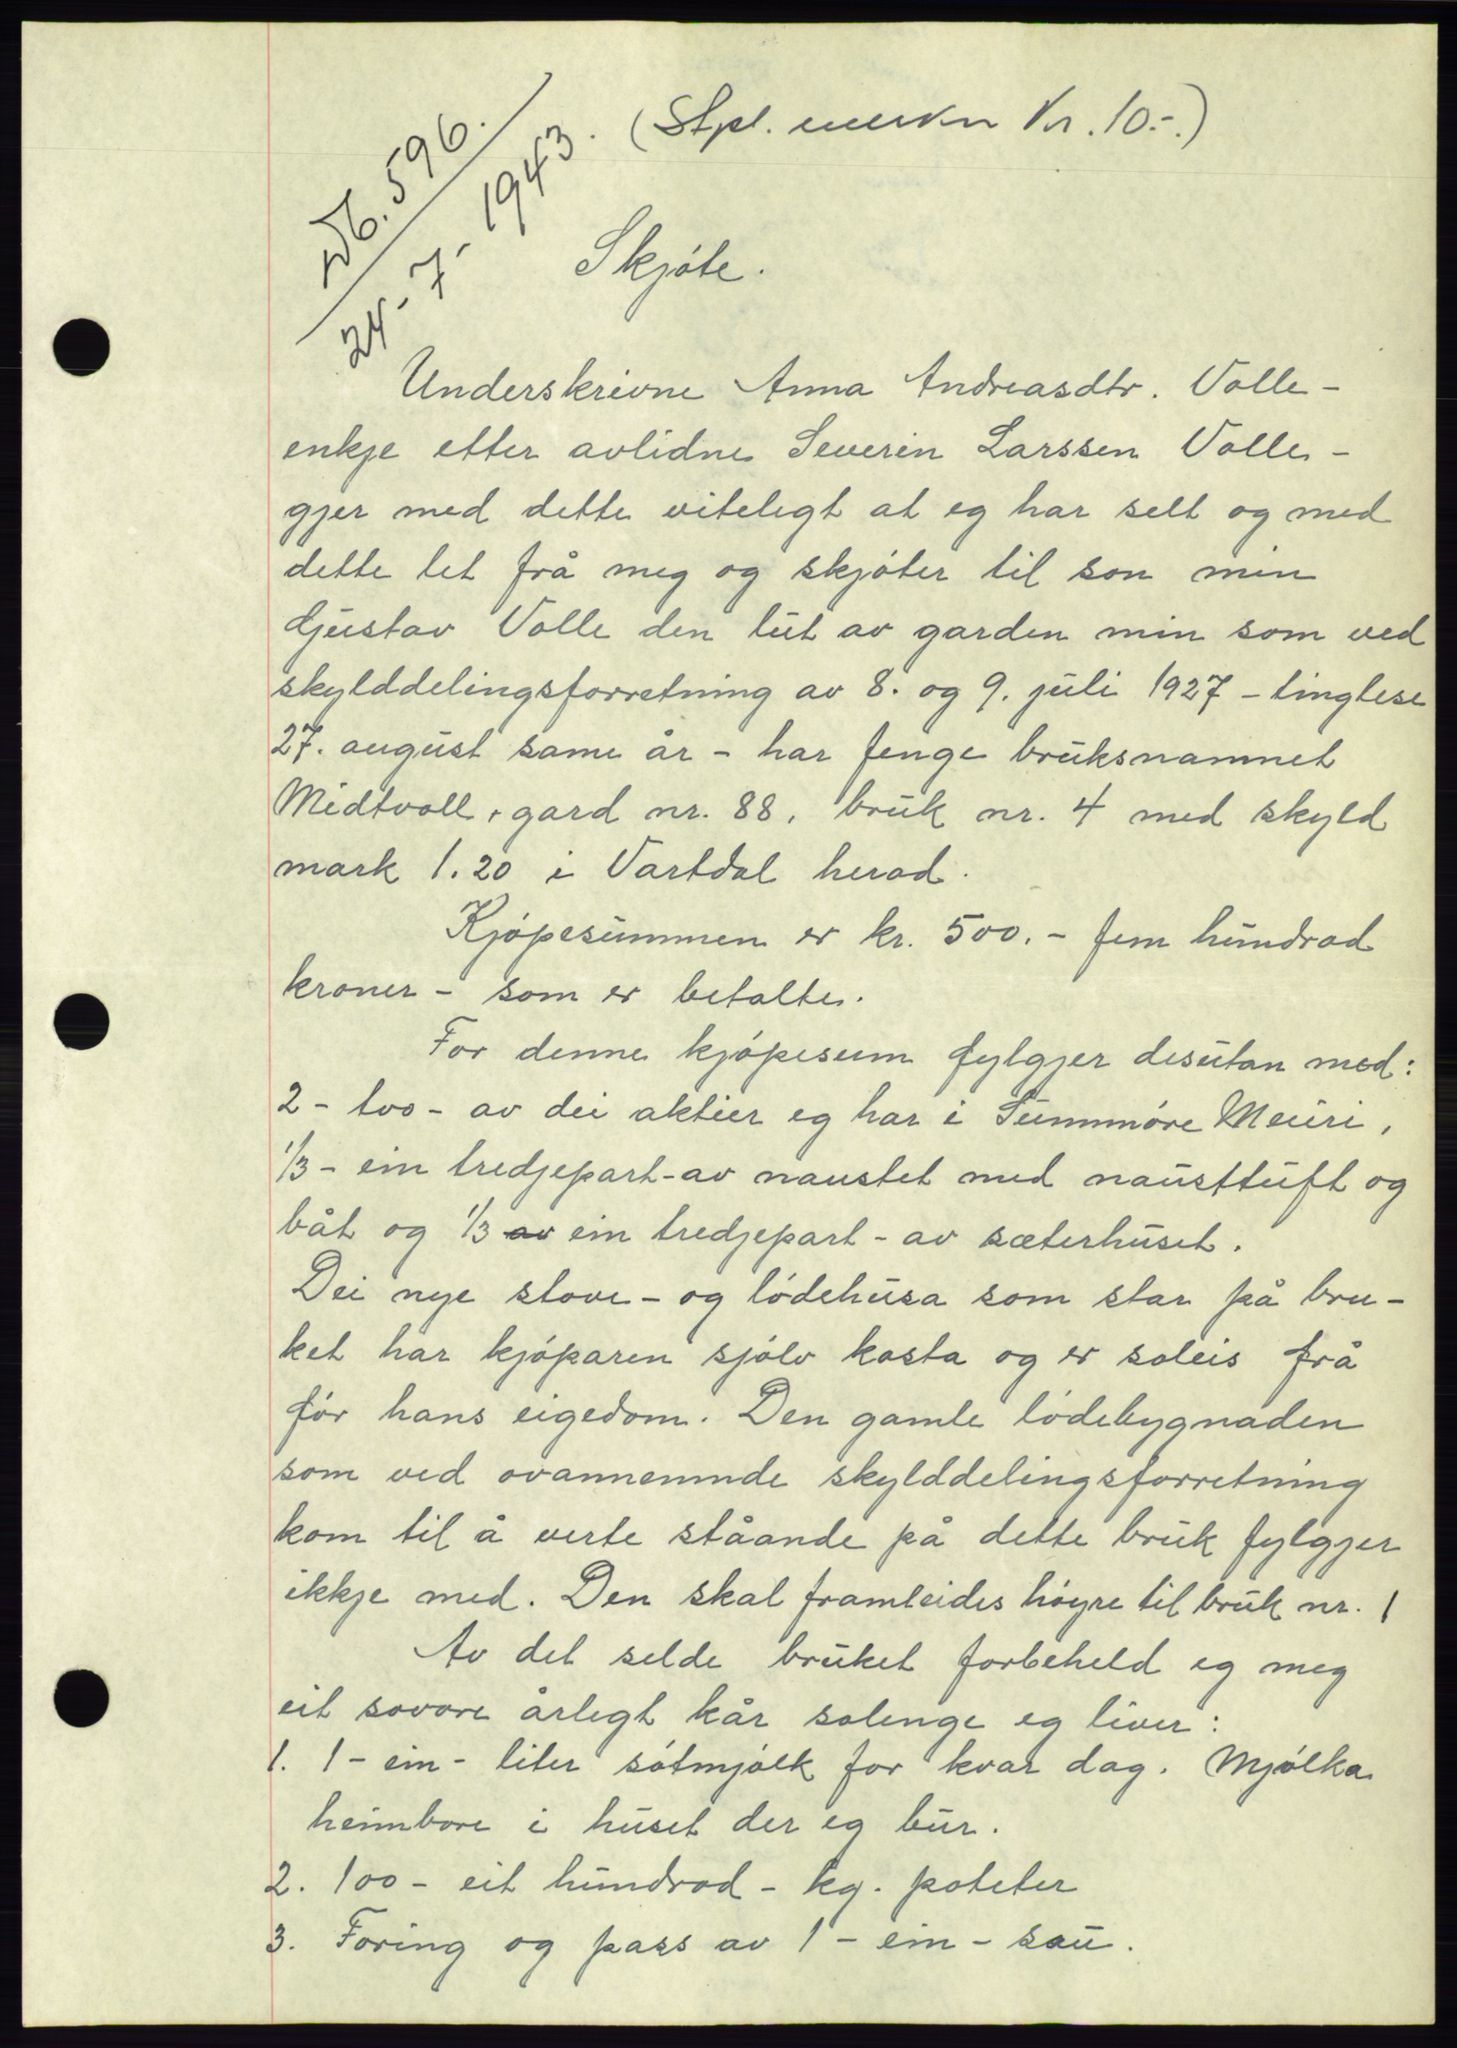 (Stpl. merker Kr. 10.-.)
Db. 596.
24-7-1943.
Skjóte.
Underskrivne Anna Andreasdtr. Valle-
enkje etter avlidne Severin Larssen Valle-
gjer med dette vitelegt at eg har selt og med
dette let frå meg og skjóter til son min
Gjustav Valle den lut av garden min som ved
skylddelingsforretning av 8. og 9. juli 1927 - tinglese
27. august same år - har fenge bruksnamnet
Midtvoll, gard nr. 88, bruk nr. 4 med skyld
mark 1.20 i Vartdal herad.
Kjópesummen er kr. 500.- fem hundrad
kroner - som er betalte.
For denne kjópesum fylgjer desutan med:
2 - tvo - av dei aktier eg har i Sunnmóre Meieri,
1/3 - ein tredjepart - av naustet med nausttuft og
båt og 1/3 av ein tredjepart - av sæterhuset.
Dei nye stove- og lódehusa som star på bru-
ket har kjóparen sjólv kosta og er soleis frå
fór hans eigedom. Den gamle lódebygnaden
som ved ovannemnde skylddelingsforretning
kom til å verte ståande på dette bruk fylgjer
ikkje med. Den skal framleides hóyre til bruk nr. 1
Av det selde bruket forbeheld eg meg
eit sovore årlegt kår solenge eg liver:
1. 1 - ein - liter sótmjólk for kvar dag. Mjólka
heimbore i huset der eg bur.
2. 100 - eit hundrad - kg. poteter
3. Foring og pass av 1 - ein - sau.